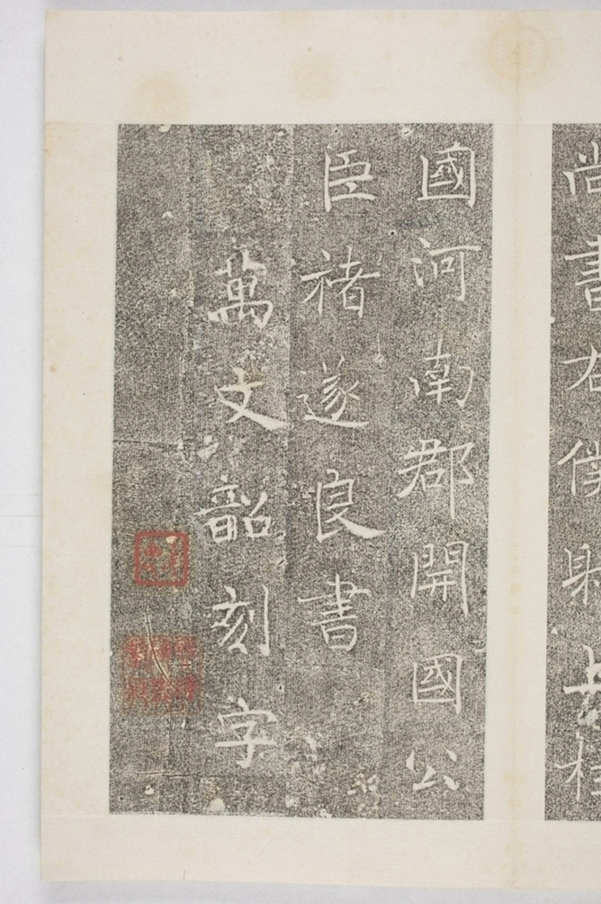 尚書右僕射上柱
國河南郡開國公
臣褚遂良書
萬文韶刻字